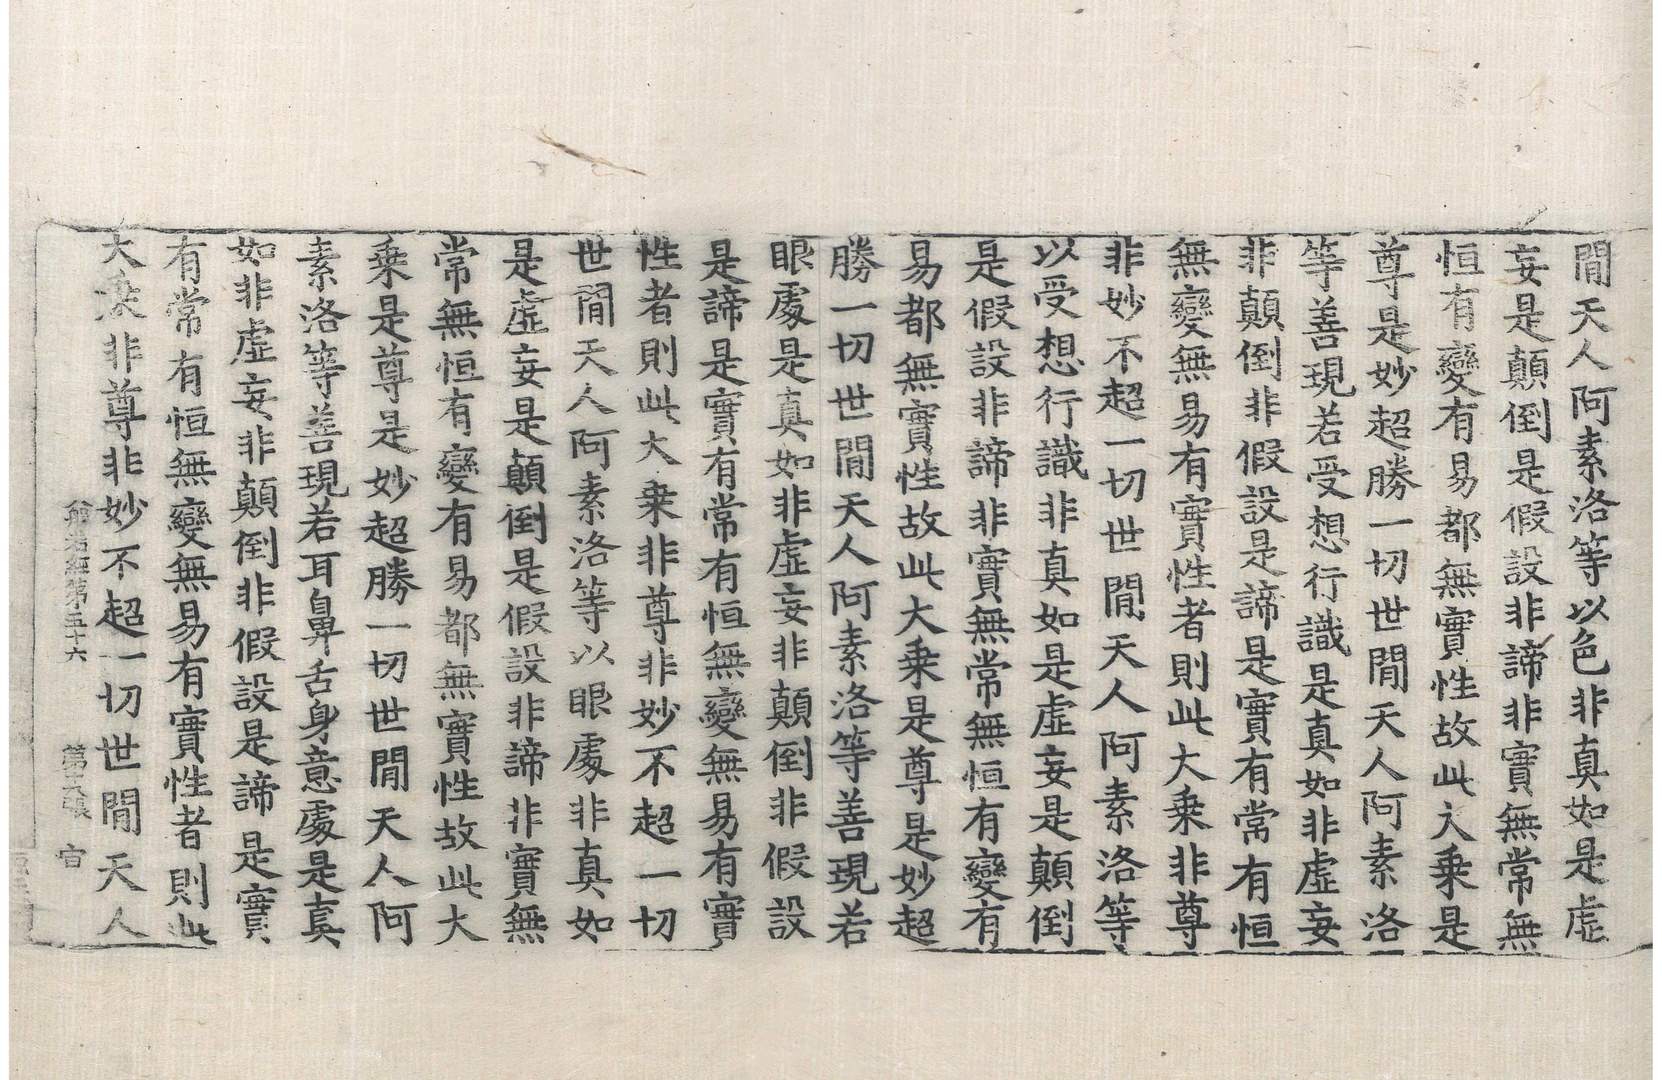 閒天人阿素洛等以色非真如是虛
妄是顛倒是假設非諦非實無常無
恒有變有易都無實性故此大乘是
尊是妙超勝一切世閒天人阿素洛
等善現若受想行識是真如非虛妄
非顛倒非假設是諦是實有常有恒
無變無易有實性者則此大乘非尊
非妙不超一切世閒天人阿素洛等
以受想行識非真如是虛妄是顛倒
是假設非諦非實無常無恒有變有
易都無實性故此大乘是尊是妙超
勝一切世閒天人阿素洛等善現若
眼處是真如非虛妄非顛倒非假設
是諦是實有常有恒無變無易有實
性者則此大乘非尊非妙不超一切
世閒天人阿素洛等以眼處非真如
是虛妄是顛倒是假設非諦非實無
常無恒有變有易都無實性故此大
乘是尊是妙超勝一切世閒天人阿
素洛等善現若耳鼻舌身意處是真
如非虛妄非顛倒非假設是諦是實
有常有恒無變無易有實性者則此
大乘非尊非妙不超一切世閒天人
般若經第五十六 第 張 宙